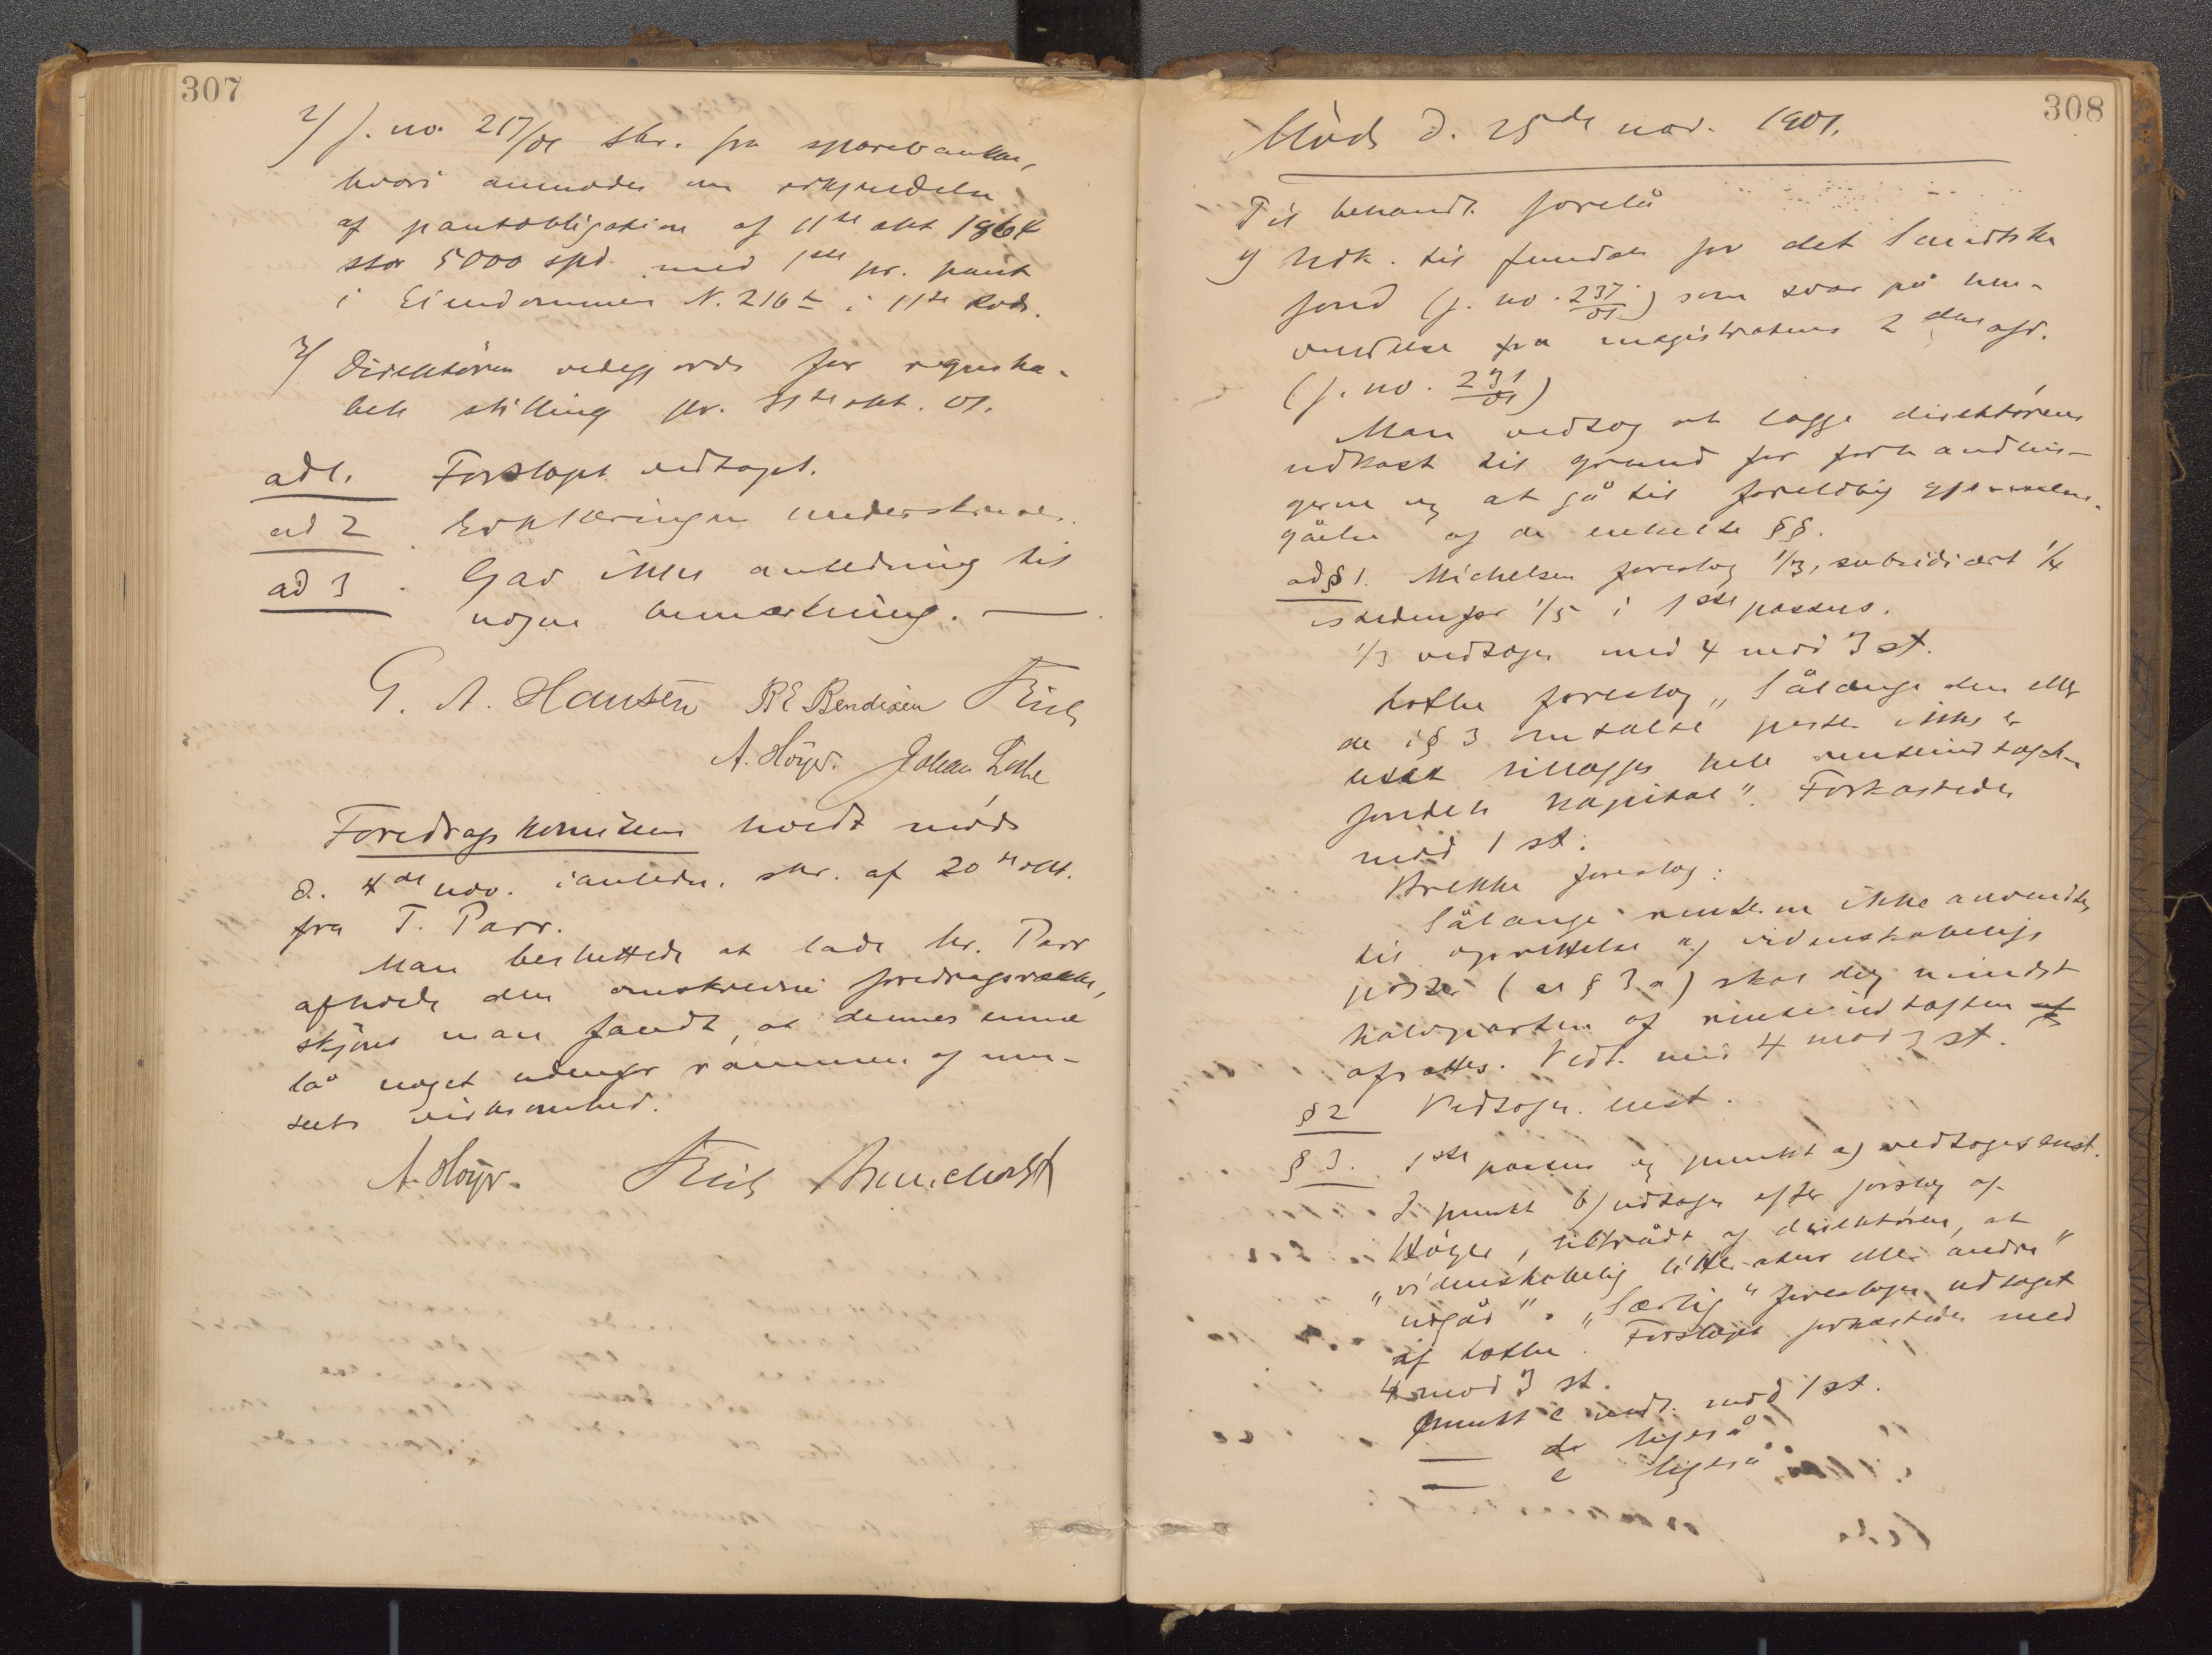 307
2/ J. no. 217/01 skr. fra sparebanken,
hvori anmodes om erkjendelse
af pantobligation af 11te okt 1864
stor 5000 spd. med 1ste pr. pant
i Eiendommen N. 216 i 11te Rode.
3/ Direktøren redegjorde for regnska-
bets stilling pr. 31te okt. 01.
ad 1. Forslaget vedtaget.
ad 2. Erklæringen underskreves.
ad 3. Gav ikke anledning til
nogen bemærkning.
G. A. Hansen B E Bendixen Friele
A. Höyer. Johan Lothe
Foredragskomiteen holdt møde
d. 4de nov. i anledn. skr. af 20de okt.
fra T. Parr.
Man besluttede at lade hr. Parr
afholde den omskrevne foredragsrække,
skjønt man fandt, at dennes emne
lå noget udenfor rammen af mu-
seets virksomhed.
A. Höyer. Friele Brunchorst
308
Møde d. 25de nov. 1901.
Til behandl. forelå
1/ Udk. til fundats for det Sundtske
fond (j. no. 237/01) som svar på hen-
vendelse fra magistratens 2den afd.
(j. no. 231/01)
Man vedtog at lægge direktørens
udkast til grund for forhandlin-
gerne og at gå til foreløbig gjennem-
gåelse af de enkelte §§.
ad § 1. Michelsen foreslog 1/3, subsidiært 1/4
istedenfor 1/5 i 1ste passus.
1/3 vedtoges med 4 mod 3 st.
Lothe foreslog „Sålænge den eller
de i § 3 omtalte poster ikke er
besat tillægges hele renteindtægten
fondets kapital". Forkastedes
mod 1 st.
Brekke foreslog:
Sålænge renterne ikke anvendes
til oprettelse af videnskabelige
poster (se § 3 a) skal dog mindst
halvparten af renteindtægten
afsættes. Vedt. med 4 mod 3 st.
§ 2 Vedtoges enst.
§ 3. 1ste passus og punkt a) vedtoges enst.
I punkt b) vedtoges efter forslag af
Höyer, tiltrådt af direktøren, at
„videnskabelig litteratur eller andre"
udgår". „Særlig" foresloges udtaget
af Lothe. Forslaget forkastedes med
4 mod 3 st.
Punkt c vedt. mod 1 st.
— d ligeså
— e ligeså